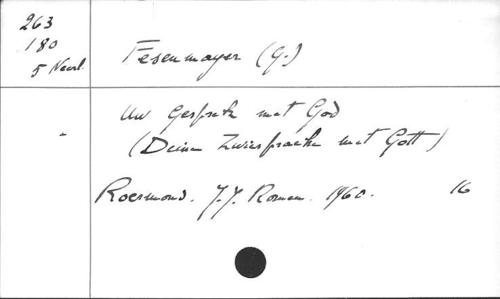 263
180
5 Neerl
Fesenmayer (G.)
Uw Gesprek met God
(Deine Zwiesprache mit Gott)
Roermond. J.J. Romen. 1960. 16